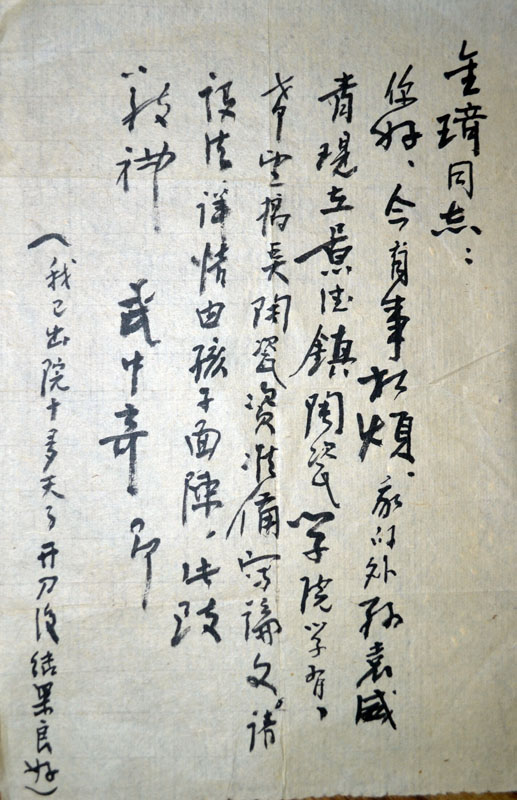 金琦同志：
你好、今有事相烦、家的外孙袁威
青现在景德镇陶瓷学院学习、
希望搞吴陶瓷资准备写论文。请
设法、详情由孩子面陈，此致
敬礼
武中奇 即
（我已出院十多天了开刀后结果良好）